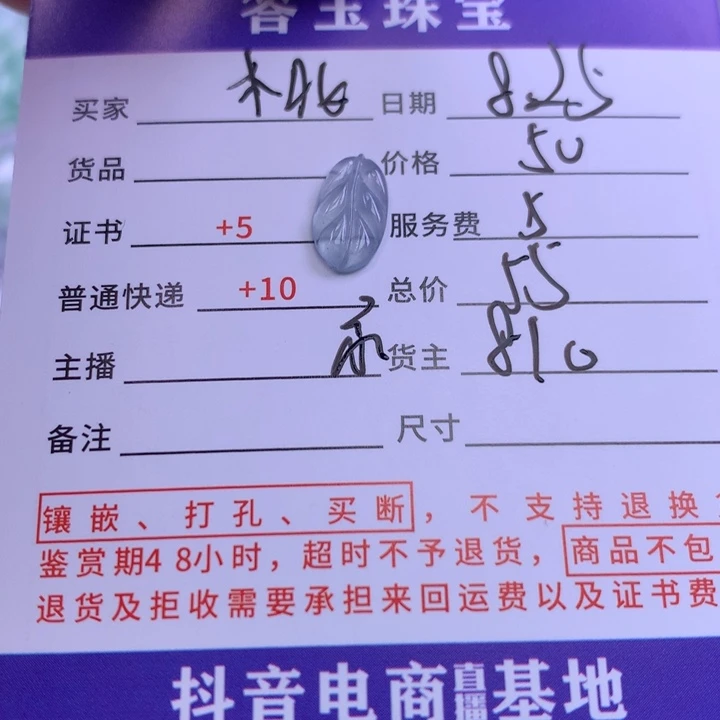 答玉珠宝
买家 日期 8.25
货品 价格 50
证书 +5 服务费 5
普通快递 +10 总价 55
主播 货主 810
备注 尺寸
镶嵌、打孔、买断，不支持退换
鉴赏期48小时，超时不予退货，商品不包
退货及拒收需要承担来回运费以及证书费
抖音电商直播基地